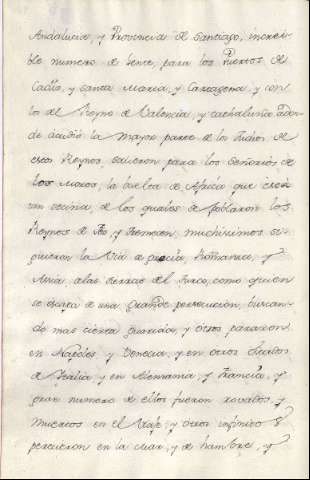 Andalucia, y Provincia de Santiago, increi-
ble numero de Gente, para los Puertos de
Cadiz, y Santa Maria, y Cartagena, y con
lo del Reyno de Valencia, y Cathaluña adon-
de acudió la mayor parte de los Judios de
estos Reynos, salieron para los Señorios de
los Moros, la buelta de Africa que está
tan vecina, de los quales se poblaron los
Reynos de Fez, y Tremecen, muchisimos si-
guieron la Via de Grecia, Romania, y
Asia, a las tierras del Turco, como quien
se escapa de una grande persecucion, buscan-
do mas cierta guarida, y otros pararon
en Napoles y Venecia, y en otros Estados
de Italia y en Alemania, y Francia, y
gran numero de ellos fueron rovados, y
muertos en el Viaje, y otros infinitos
perecieron en la mar, y de hambre, y